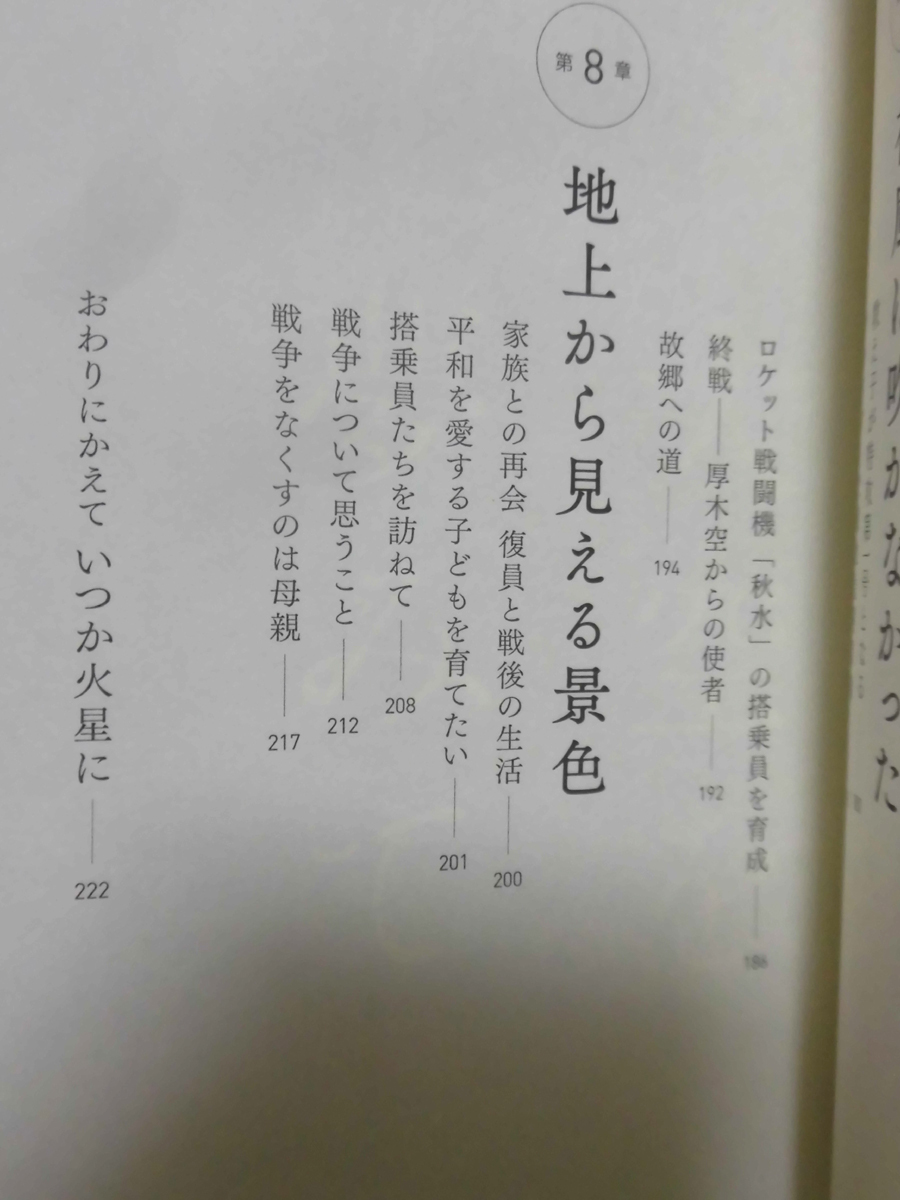 ロケット戦闘機「秋水」の搭乗員を育成 —— 186
終戦——厚木空からの使者 —— 192
故郷への道 —— 194
第8章
地上から見える景色
家族との再会 復員と戦後の生活 —— 200
平和を愛する子どもを育てたい —— 201
搭乗員たちを訪ねて —— 208
戦争について思うこと —— 212
戦争をなくすのは母親 —— 217
おわりにかえて いつか火星に —— 222